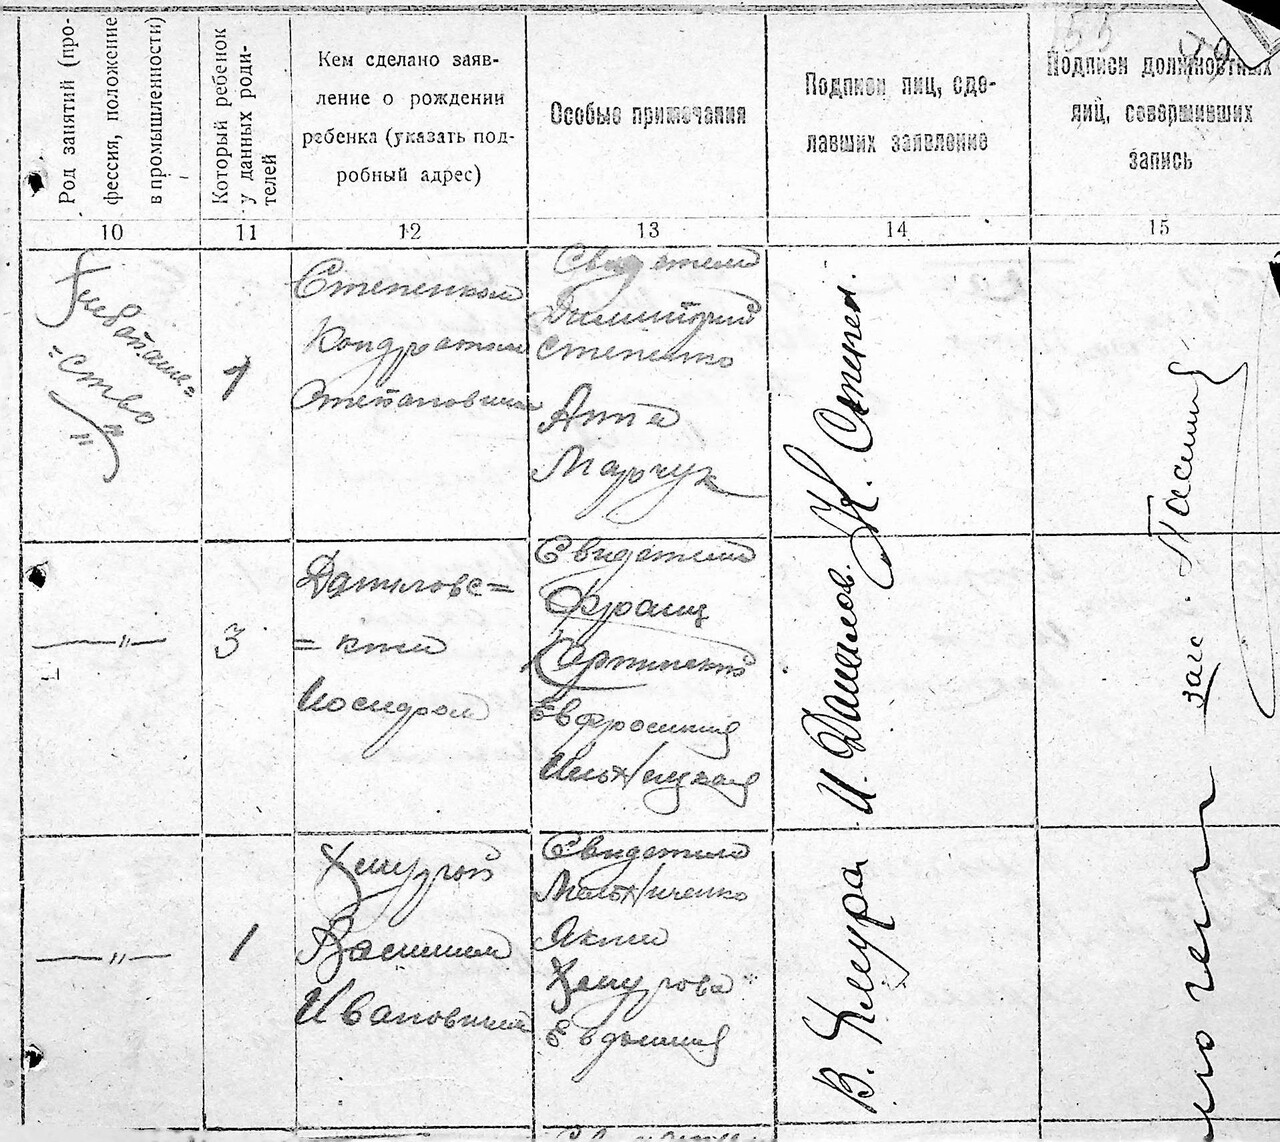 155
79
Род занятий (про-
фессия, положение
в промышленности)
Который ребенок
у данных роди-
телей
Кем сделано заяв-
ление о рождении
ребенка (указать под-
робный адрес)
Особые примечания
Подписи лиц, сде-
лавших заявление
Подписи должностных
лиц, совершивших
запись
10
11
12
13
14
15
Хлебопаше=
=ство
1
Степенком
Кондратом
Степановичем
Свидетели
Димитрий
Степенко
Анна
Марчук
К. Степен.
загс.
—"—
3
Даниловс=
=ким
Иосифом
Свидетели
Франц
Евфросиния
И. Данилов.
—"—
1
Хмурой
Василием
Ивановичем
Свидетели
Мельниченко
Яким
Хмурова
Евдокия
В. Хмура